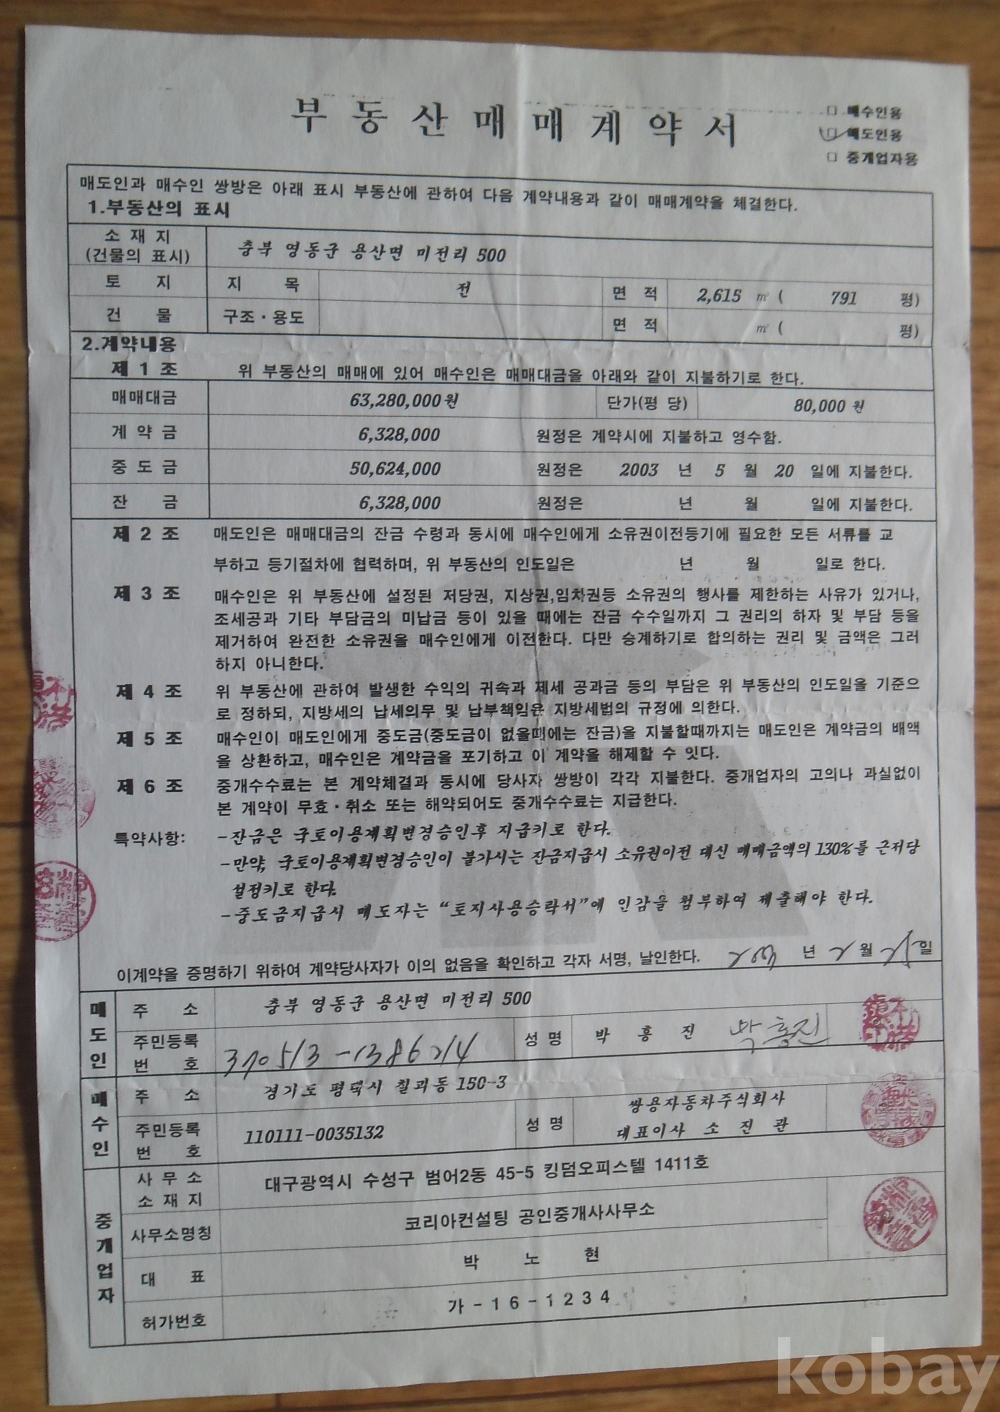 부동산매매계약서
□ 매수인용
□ 매도인용
□ 중개업자용
매도인과 매수인 쌍방은 아래 표시 부동산에 관하여 다음 계약내용과 같이 매매계약을 체결한다.
1.부동산의 표시
소 재 지 (건물의 표시) 충북 영동군 용산면 미전리 500
토 지 지 목 전 면 적 2,615 ㎡ ( 791 평)
건 물 구조·용도 면 적 ㎡ ( 평)
2.계약내용
제 1 조 위 부동산의 매매에 있어 매수인은 매매대금을 아래와 같이 지불하기로 한다.
매매대금 63,280,000원 단가(평 당) 80,000 원
계 약 금 6,328,000 원정은 계약시에 지불하고 영수함.
중 도 금 50,624,000 원정은 2003 년 5 월 20 일에 지불한다.
잔 금 6,328,000 원정은 년 월 일에 지불한다.
제 2 조 매도인은 매매대금의 잔금 수령과 동시에 매수인에게 소유권이전등기에 필요한 모든 서류를 교
부하고 등기절차에 협력하며, 위 부동산의 인도일은 년 월 일로 한다.
제 3 조 매수인은 위 부동산에 설정된 저당권, 지상권,임차권등 소유권의 행사를 제한하는 사유가 있거나,
조세공과 기타 부담금의 미납금 등이 있을 때에는 잔금 수수일까지 그 권리의 하자 및 부담 등을
제거하여 완전한 소유권을 매수인에게 이전한다. 다만 승계하기로 합의하는 권리 및 금액은 그러
하지 아니한다.
제 4 조 위 부동산에 관하여 발생한 수익의 귀속과 제세 공과금 등의 부담은 위 부동산의 인도일을 기준으
로 정하되, 지방세의 납세의무 및 납부책임은 지방세법의 규정에 의한다.
제 5 조 매수인이 매도인에게 중도금(중도금이 없을때에는 잔금)을 지불할때까지는 매도인은 계약금의 배액
을 상환하고, 매수인은 계약금을 포기하고 이 계약을 해제할 수 잇다.
제 6 조 중개수수료는 본 계약체결과 동시에 당사자 쌍방이 각각 지불한다. 중개업자의 고의나 과실없이
본 계약이 무효·취소 또는 해약되어도 중개수수료는 지급한다.
특약사항: -잔금은 국토이용계획변경승인후 지급키로 한다.
-만약, 국토이용계획변경승인이 불가시는 잔금지급시 소유권이전 대신 매매금액의 130%를 근저당
설정키로 한다.
-중도금지급시 매도자는 “토지사용승락서”에 인감을 첨부하여 제출해야 한다.
이계약을 증명하기 위하여 계약당사자가 이의 없음을 확인하고 각자 서명, 날인한다. 2003 년 2 월 25 일
매도인 주 소 충북 영동군 용산면 미전리 500
주민등록 번 호 370513-1386214 성 명 박 홍 진 박홍진
매수인 주 소 경기도 평택시 칠괴동 150-3
주민등록 번 호 110111-0035132 성 명 쌍용자동차주식회사
대표이사 소 진 관
중개업자 사 무 소 소 재 지 대구광역시 수성구 범어2동 45-5 킹덤오피스텔 1411호
사무소명칭 코리아컨설팅 공인중개사사무소
대 표 박 노 현
허가번호 가-16-1234
kobay